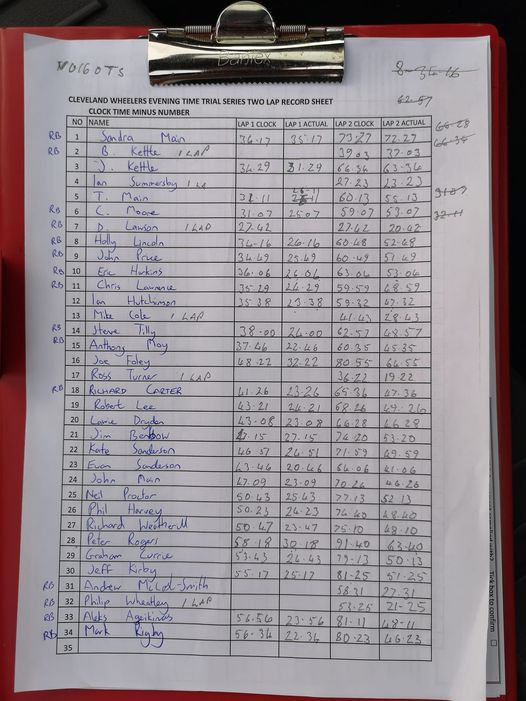 BANTEX
8-34-16
62-57
CLEVELAND WHEELERS EVENING TIME TRIAL SERIES TWO LAP RECORD SHEET
CLOCK TIME MINUS NUMBER
NO NAME LAP 1 CLOCK LAP 1 ACTUAL LAP 2 CLOCK LAP 2 ACTUAL
RB 1 Sandra Main 36.17 35.17 73.27 72.27
RB 2 B. Kettle 1 LAP 39.03 37.03
3 J. Kettle 34.29 31.29 66.36 63.36
4 Ian Summersby 27.23 23.23
5 T. Main 60.13 55.13
RB 6 C. Moore 31.07 25.07 59.07 53.07
RB 7 D. Lawson 1 LAP 27.42 27.42 20.42
RB 8 Holly Lincoln 34.16 26.16 60.48 52.48
RB 9 John Pryce 34.49 25.49 60.49 51.49
RB 10 Eric Harkins 36.06 26.06 63.06 53.06
RB 11 Chris Lawrence 35.29 24.29 59.59 48.59
12 Ian Hutchinson 35.38 23.38 59.32 47.32
13 Mike Cole 1 LAP 41.43 28.43
RB 14 Steve Tilly 38.00 24.00 62.57 48.57
RB 15 Anthony Moy 37.46 22.46 60.35 45.35
16 Joe Foley 48.22 32.22 80.55 64.55
17 Ross Turner 1 LAP 36.22 19.22
RB 18 RICHARD CARTER 41.26 23.26 65.36 47.36
19 Robert Lee 43.21 24.21 68.26 49.26
20 Lawrie Dryden 43.08 23.08 66.28 46.28
21 Jim Benbow 27.15 74.20 53.20
22 Kate Sanderson 46.57 24.51 71.59 49.59
23 Euan Sanderson 43.46 20.46 64.06 41.06
24 John Main 47.09 23.09 70.26 46.26
25 Neil Proctor 50.43 25.43 77.13 52.13
26 Phil Harvey 50.23 24.23 74.40 48.40
27 Richard Weatherill 50.47 23.47 75.10 48.10
28 Peter Rogers 58.18 30.18 91.40 63.40
29 Graham Currie 53.43 24.43 79.13 50.13
30 Jeff Kirby 55.17 25.17 81.25 51.25
RB 31 Andrew 58.31 27.31
RB 32 Philip Wheatley 1 LAP 53.25 21-25
RB 33 Aleks 56.56 23.56 81.11 48-11
RB 34 Mark Rigby 56-34 22.34 80.23 46.23
35
Tick box to confirm